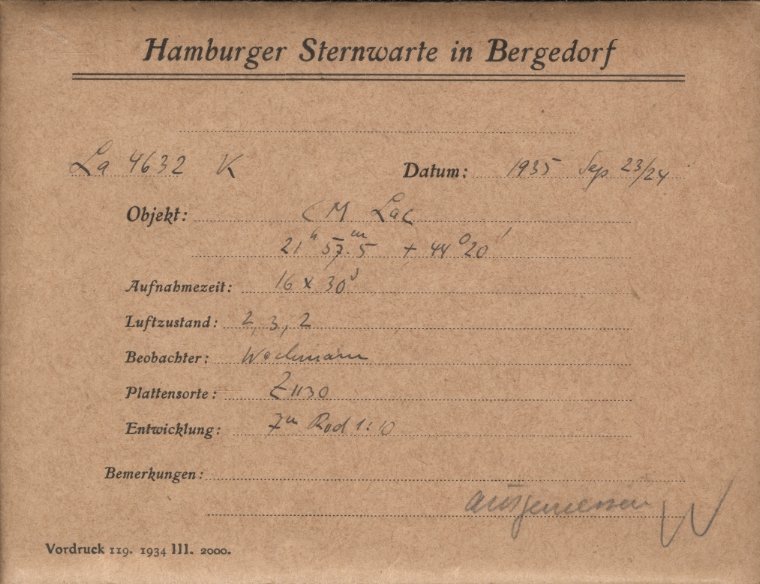 Hamburger Sternwarte in Bergedorf
La 4632 K Datum: 1935 Sep. 23/24
Objekt: CM Lac
21ʰ 57ᵐ.5 + 44° 20'
Aufnahmezeit: 16 x 30ˢ
Luftzustand: 2, 3, 2
Beobachter: Wachmann
Plattensorte: Z 1130
Entwicklung: 7ᵐ Rod 1:10
Bemerkungen:
ausgemessen W
Vordruck 119. 1934 III. 2000.